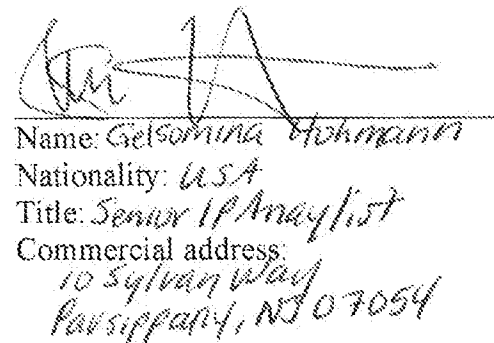 Name: Gelsomina Hohmann
Nationality: USA
Title: Senior IP Anaylist
Commercial address:
10 Sylvan Way
Parsippany, NJ 07054